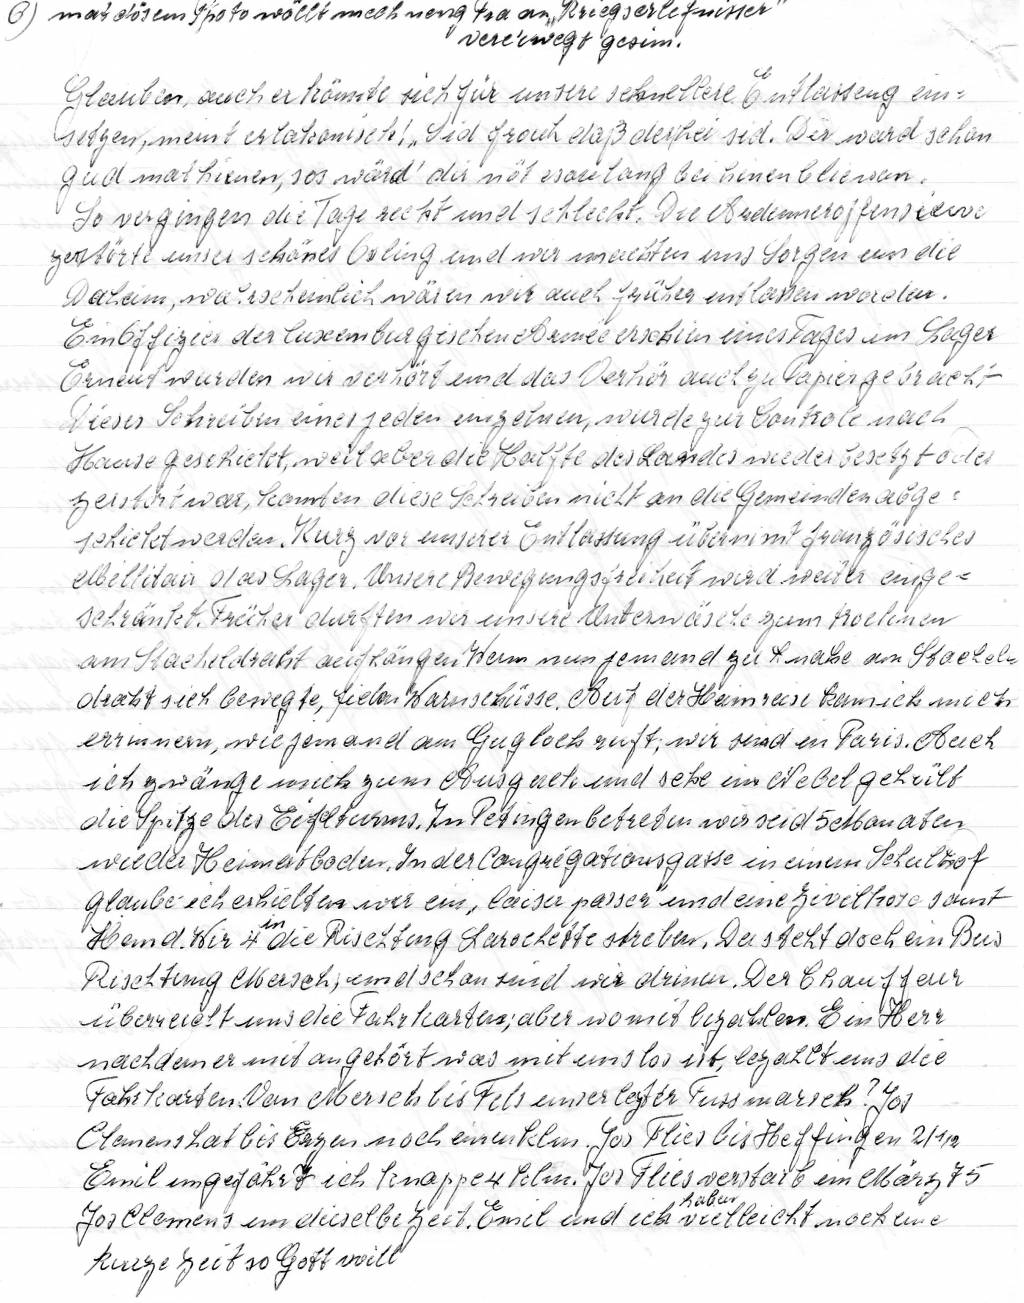 6) mat dösem Photo wöllt mech neng Fra an „Kriegserlefnisser"
vereiwegt gesinn.
Glauben, auch er könnte sich für unsere schnellere Entlassung ein=
setzen, meint er lakonisch: „Sid frouh daß der hei sid. Dir ward schon
gud mat hinen, sos wärd dir nöt esou lang bei hinen bliewen.
So vergingen die Tage recht und schlecht. Die Ardenneroffensieve
zerstörte unser schönes Ösling und wir machten uns Sorgen um die
Daheim, wahrscheinlich wären wir auch früher entlassen worden.
Ein Offizier der luxemburgischen Armee erschien eines Tages im Lager
Erneut wurden wir verhört und das Verhör auch zu Papier gebracht
Dieses Schreiben eines jeden einzelnen, wurde zur Controle nach
Hause geschickt, weil aber die Hälfte des Landes wieder besetzt oder
zerstört war, konnten diese Schreiben nicht an die Gemeinden abge=
schickt werden. Kurz vor unserer Entlassung übernimt französisches
Millitair das Lager. Unsere Bewegungsfreiheit wird weiter einge=
schränkt. Früher durften wir unsere Unterwäsche zum trocknen
am Stacheldraht aufhängen. Wenn nun jemand zu nahe am Stachel=
draht sich bewegte, fielen Warnschüsse. Auf der Heimreise kann ich mich
errinnern, wie jemand am Gugloch ruft; wir sind in Paris. Auch
ich zwänge mich zum Ausguck und sehe im Nebel gehült
die Spitze des Eifelturms. In Petingen betreten wir seid 5 Monaten
wieder Heimatboden. In der Congrégationsgasse in einem Schulhof
glaube ich erhielten wir ein „laiser passer und eine Zivilhose samt
Hemd. Wir 4 in die Rischtung Larochette streben. Da steht doch ein Bus
Rischtung Mersch; und schon sind wir drinn. Der Chauffeur
überreicht uns die Fahrkarten; aber womit bezahlen. Ein Herr
nachdem er mit angehört was mit uns los ist, bezahlt uns die
Fahrkarten. Von Mersch bis Fels unser letzter Fussmarsch? Jos
Clemens hat bis Ernzen noch einen klm. Jos Flies bis Heffingen 2 1/2
Emil ungefähr & ich knappe 4 klm. Jos Flies verstarb im März 75
Jos Clemens um dieselbe Zeit. Emil und ich haben vielleicht noch eine
kurze Zeit so Gott will